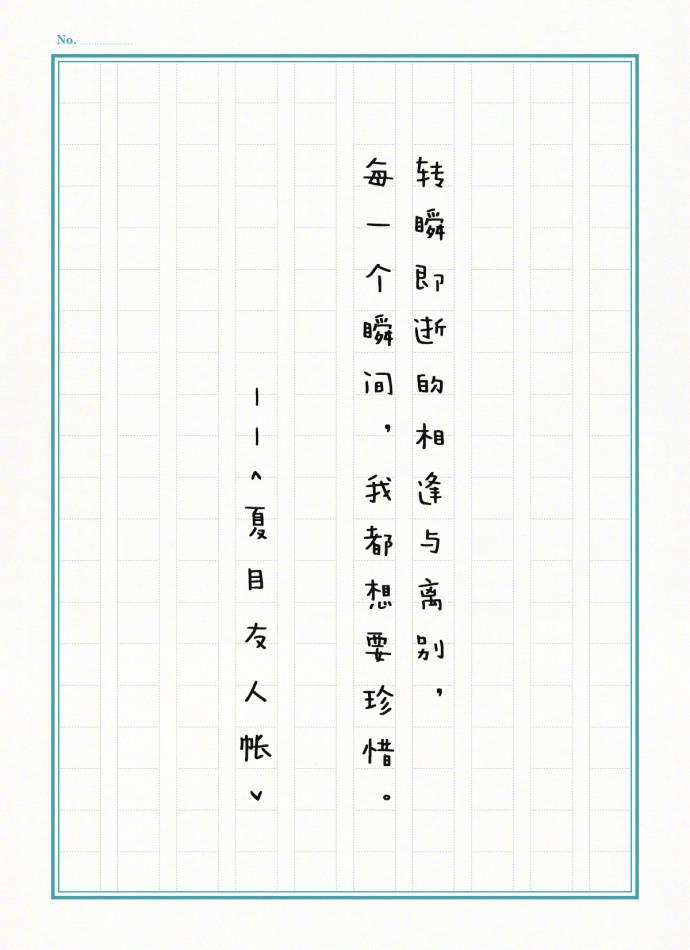 No.
转瞬即逝的相逢与离别，
每一个瞬间，我都想要珍惜。
——〈夏目友人帐〉